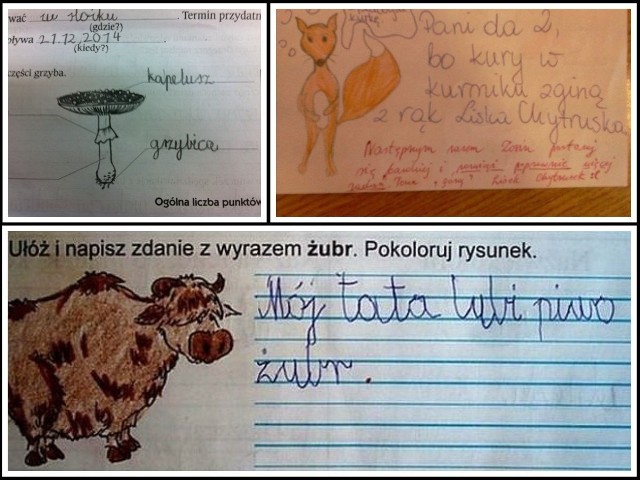 wać w słoiku. Termin przydatn
(gdzie?)
pływa 21.12.2014.
(kiedy?)
części grzyba.
kapelusz
grzybica
Ogólna liczba punktów
Pani da 2,
bo kury w
kurniku zginą
z rąk Liska Chytruska
Następnym razem Zosiu
się bardziej i
Lisek Chytrusek
Ułóż i napisz zdanie z wyrazem żubr. Pokoloruj rysunek.
Mój tata lubi piwo
żubr.